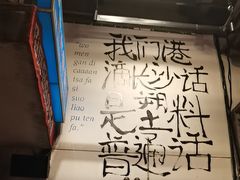 “wo
men
gan di
caaaan
tsa fa
si
suo
liao
pu ten
fa.”
我们港
滴长沙话
是塑料
普通话